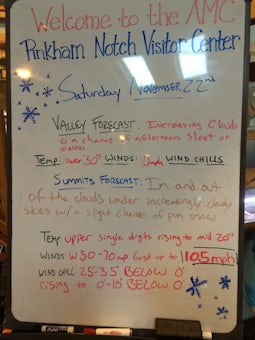 Welcome to the AMC
Pinkham Notch Visitor Center
Saturday November 22nd
VALLEY FORECAST: Increasing Clouds
a chance of afternoon sleet or
snow
TEMP: lower 30° WINDS: 10mph WIND CHILLS
SUMMITS FORECAST: In and out
of the clouds under increasingly cloudy
skies w/ a slight chance of pm snow
TEMP upper single digits rising to mid 20°
WINDS: W 50-70 mph. Gust up to 105mph
WIND CHILL 25-35 BELOW 0°
rising to 0-10° BELOW 0°